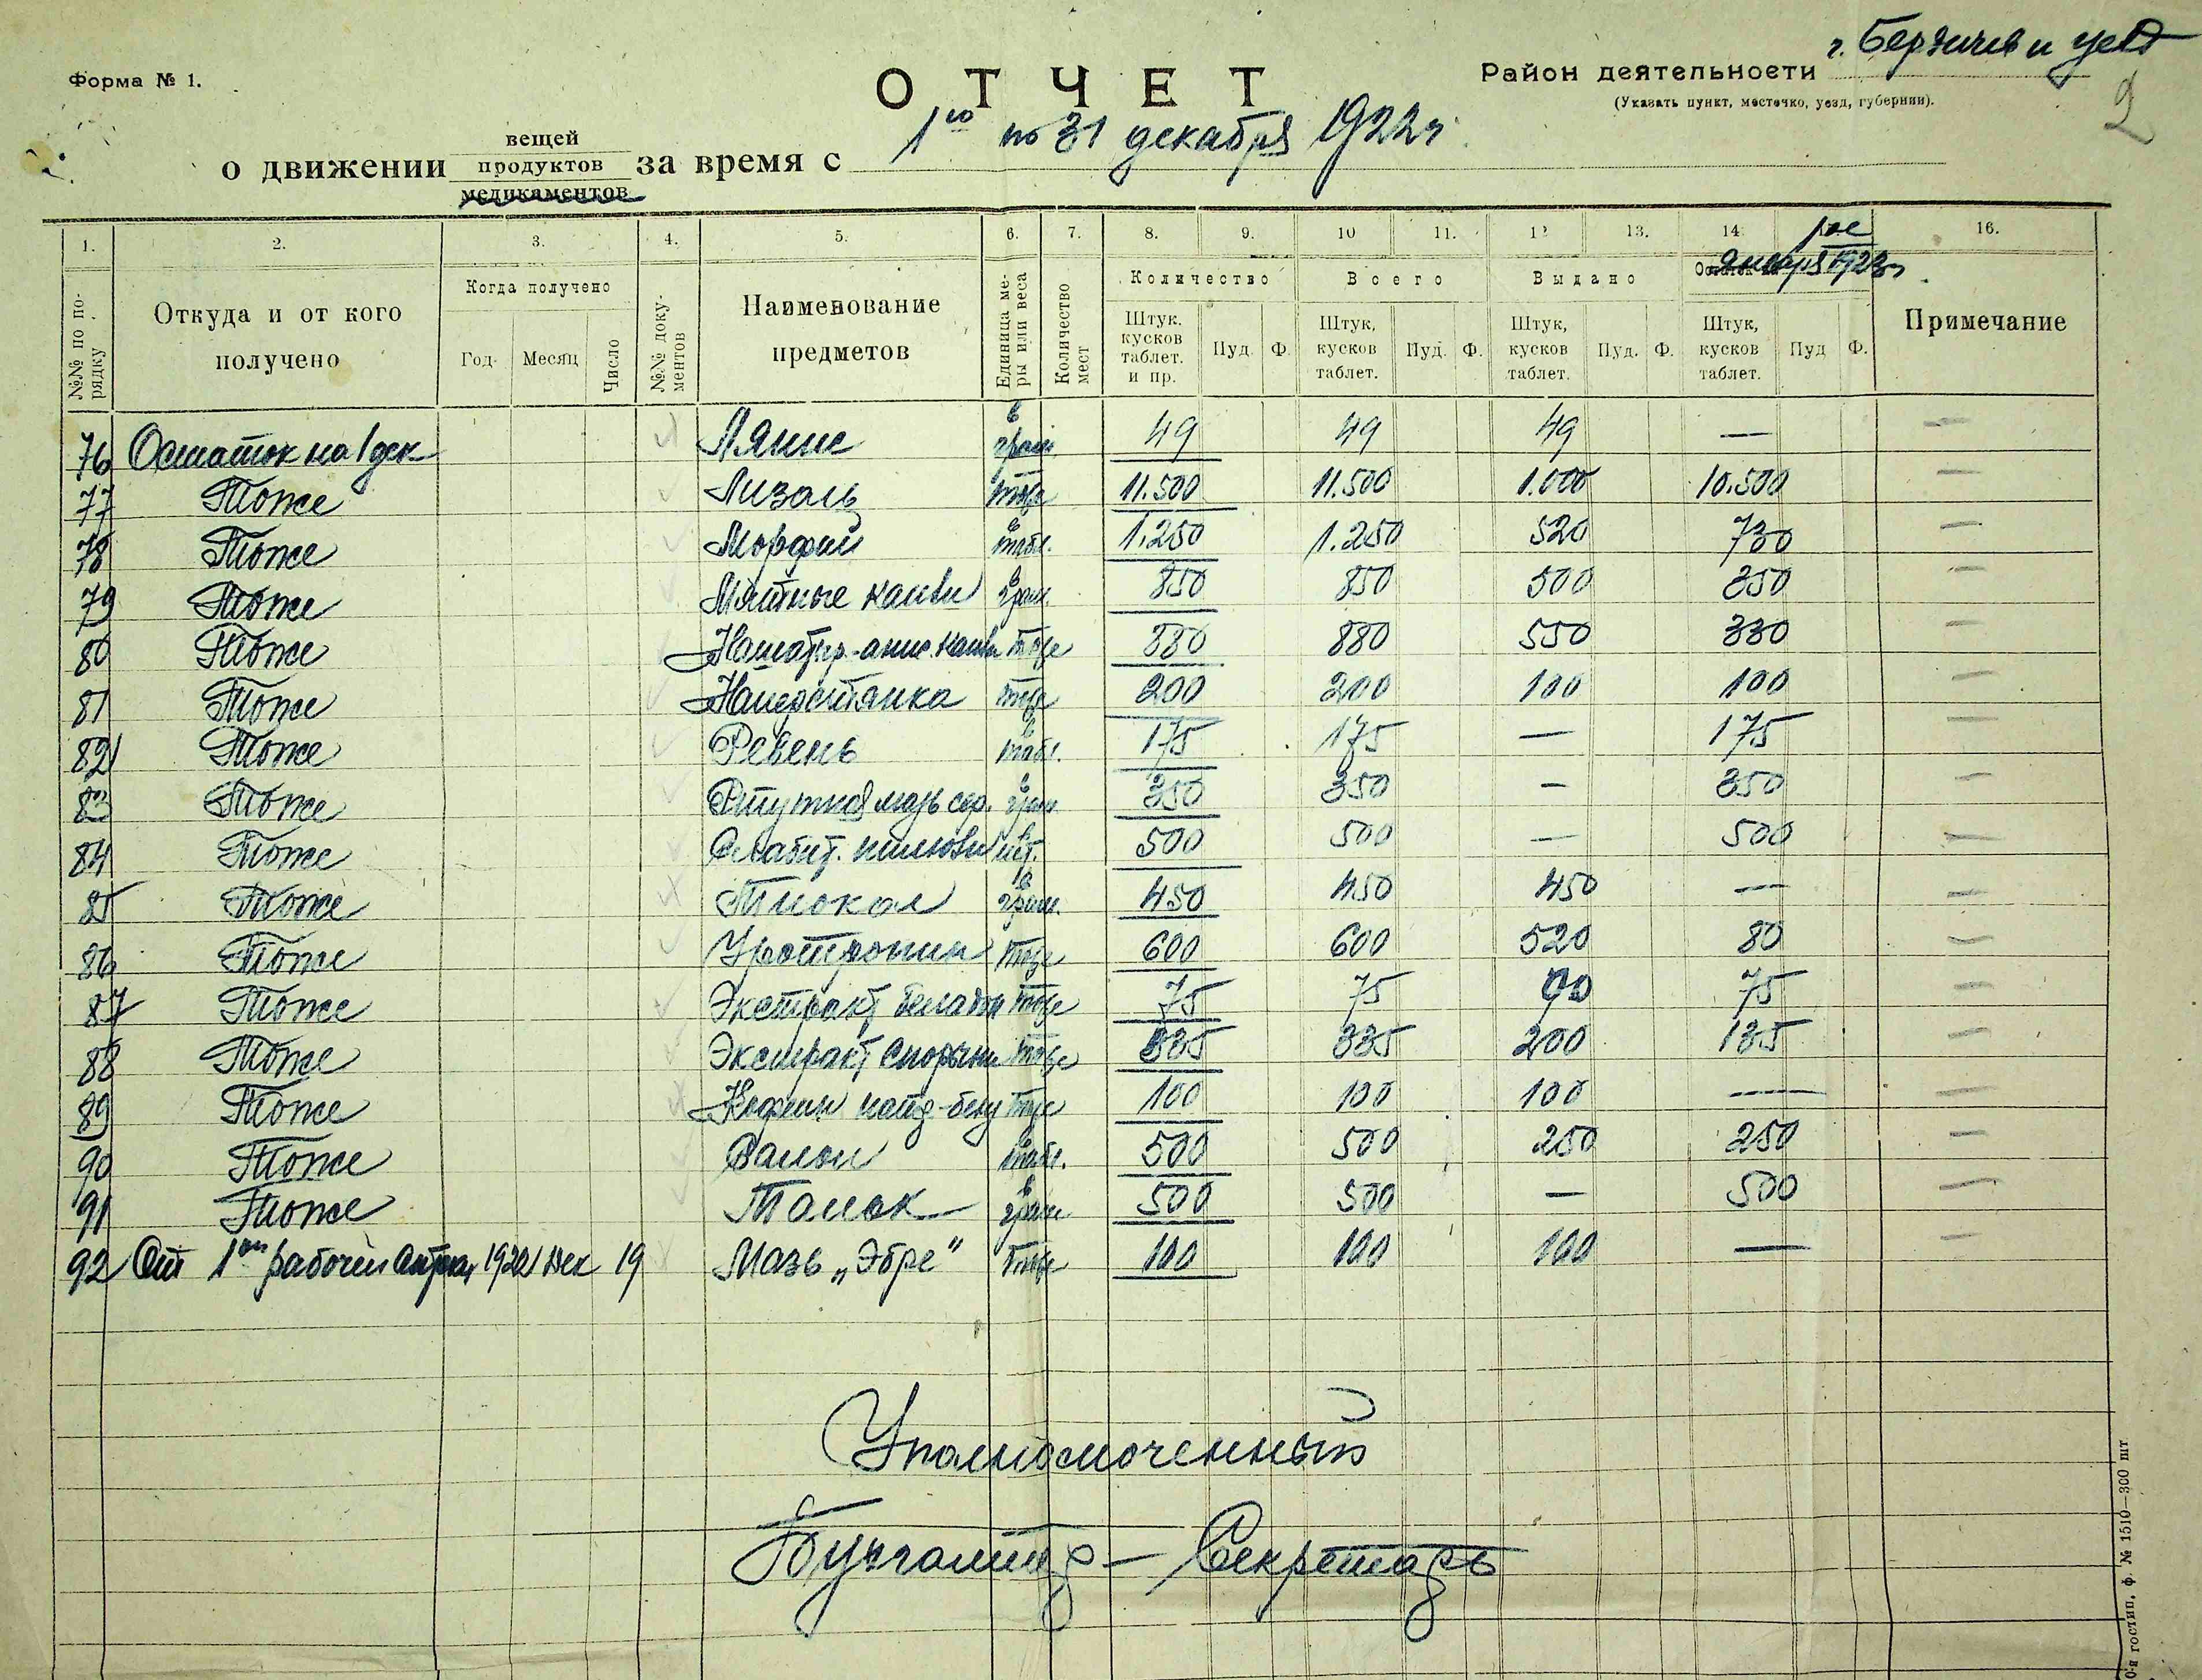 Форма № 1.
ОТЧЕТ
Район деятельности г. Бердичев и уезд
(Указать пункт, местечко, уезд, губернии).
2
о движении вещей продуктов медикаментов за время с 1го по 31 декабря 1922 г.
1. 2. 3. 4. 5. 6. 7. 8. 9. 10 11. 12 13. 14 16.
№№ по порядку
Откуда и от кого получено
Когда получено
Год Месяц Число
№№ документов
Наименование предметов
Единица меры или веса
Количество мест
Количество
Штук. кусков таблет. и пр. Пуд. Ф.
Всего
Штук, кусков таблет. Пуд. Ф.
Выдано
Штук, кусков таблет. Пуд. Ф.
Остаток на 1ое января 1923 г.
Штук, кусков таблет. Пуд Ф.
Примечание
76 Остаток на 1 дек в грам 49 49 49 —
77 Тоже Лизоль тоже 11.500 11.500 1.000 10.500 —
78 Тоже Морфий в табл. 1.250 1.250 520 730 —
79 Тоже Мятные капли в грам. 850 850 500 350 —
80 Тоже Нашатыр-анис. капли тоже 880 880 550 330 —
81 Тоже Наперстянка тоже 200 200 100 100 —
82 Тоже Ревень в табл. 175 175 — 175 —
83 Тоже Ртутная мазь сер. в грам 350 350 — 350 —
84 Тоже Слабит. пилюли шт. 500 500 — 500 —
85 Тоже Тиокол в грам. 450 450 450 — —
86 Тоже Уротропин тоже 600 600 520 80 —
87 Тоже Экстракт беладон тоже 75 75 75 —
88 Тоже Экстракт спорыньи тоже 335 335 200 135 —
89 Тоже Кофеин натр-бенз тоже 100 100 100 — —
90 Тоже Салол в табл. 500 500 250 250 —
91 Тоже Тальк в грам 500 500 — 500 —
92 От 1ой рабочей 1922 Дек 19 Мазь „Эбре" тоже 100 100 100 — —
Уполномоченный
Бухгалтер — Секретарь
гостип, ф. № 1510—300 шт